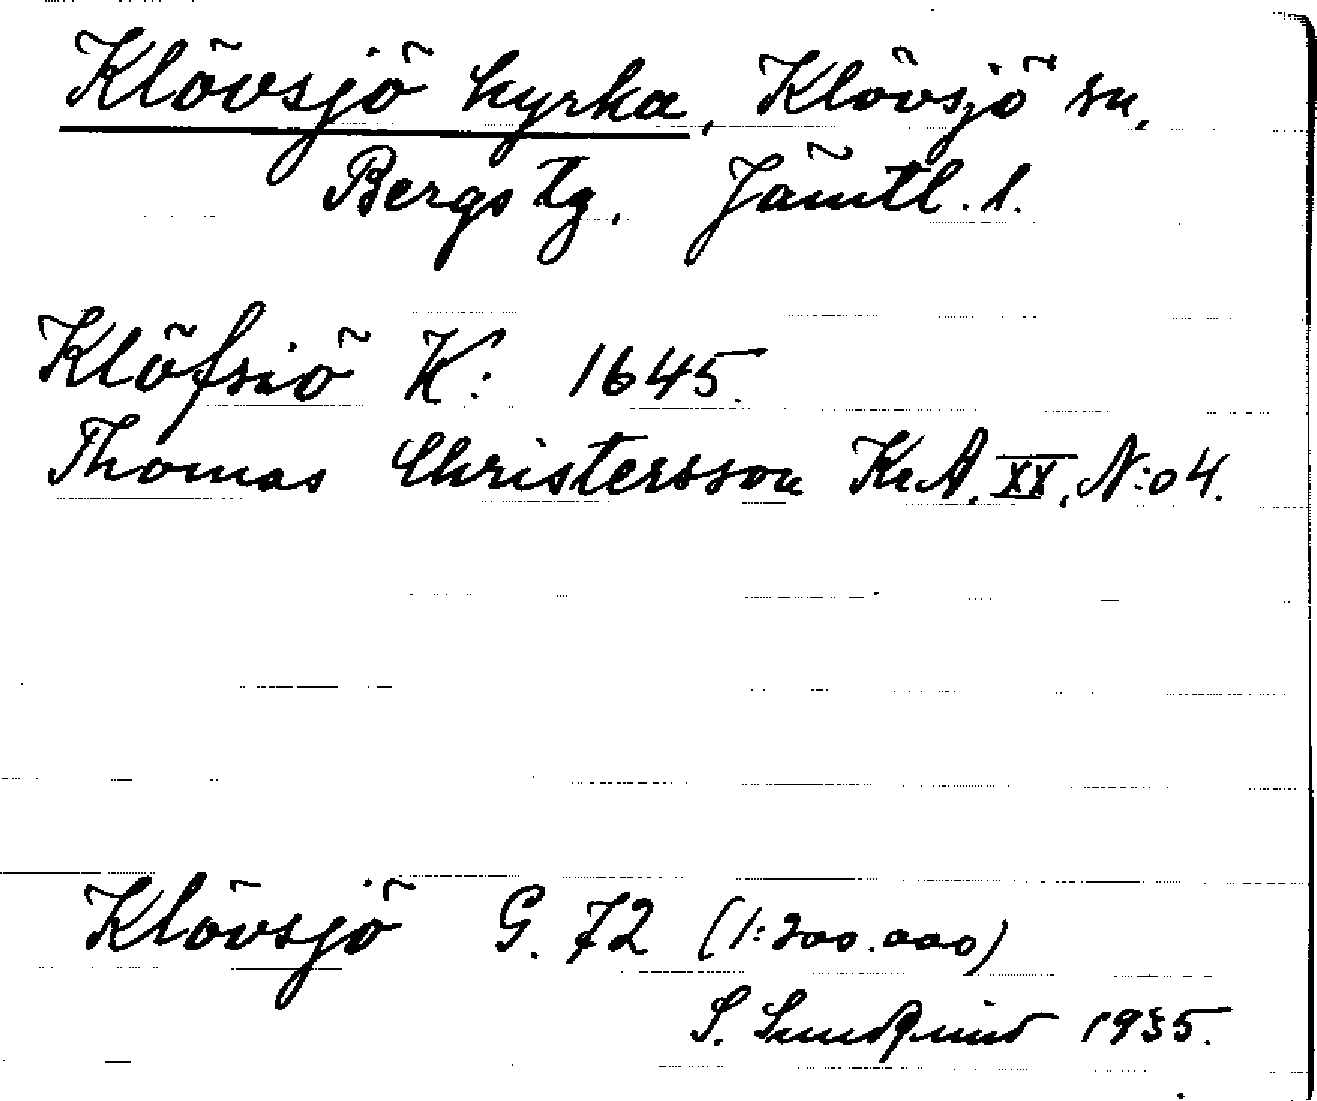 Klövsjö kyrka, Klövsjö sn,
Bergs tg. Jämtl. l.
Klöfsiö K: 1645.
Thomas Christersson Kr.A. XX, N:o 4.
Klövsjö G. 72 (1:200.000)
S. Sundqvist 1935.